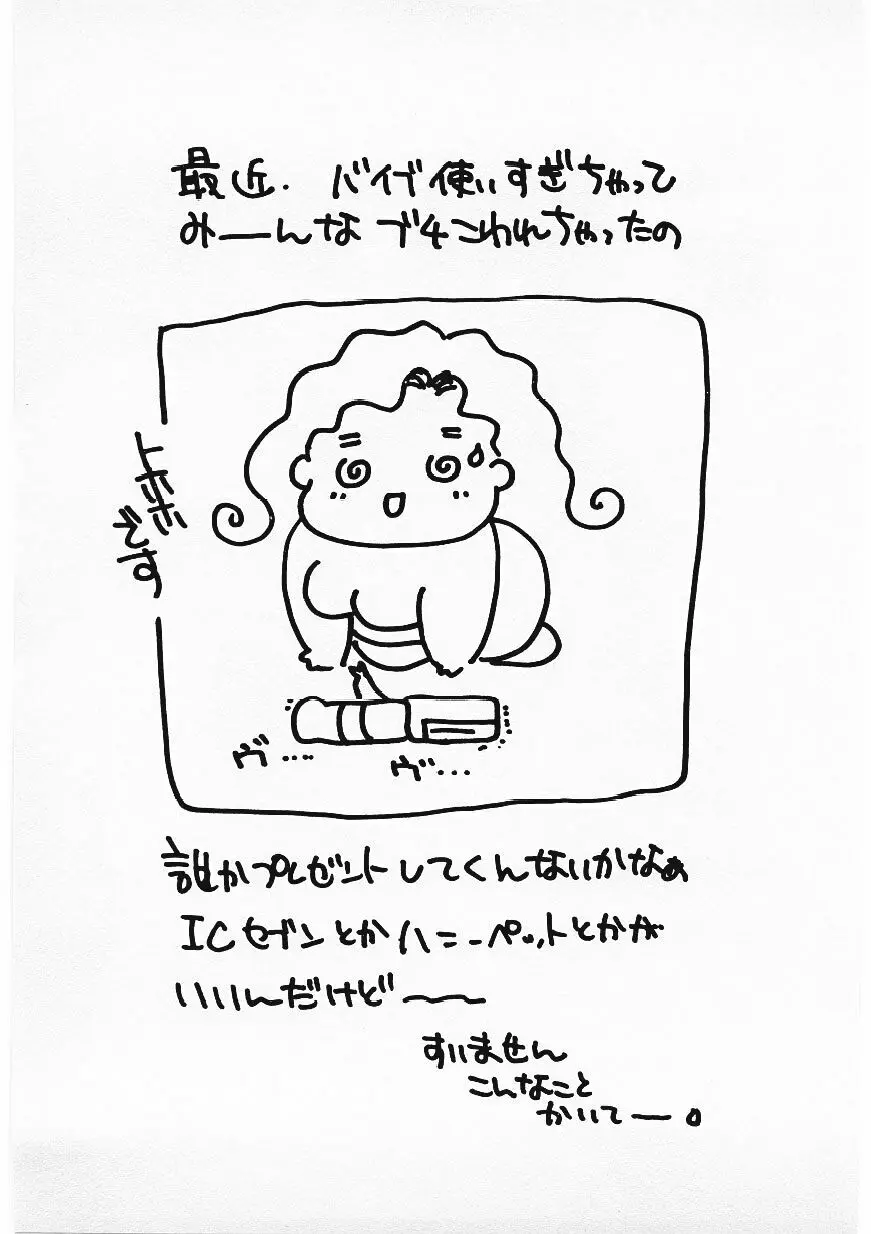 最近.バイブ使いすぎちゃって
みーんなブチこわれちゃったの
です
ヴ…
ヴ…
誰かプレゼントしてくんないかなぁ
ICセブンとかハニーペットとかが
いいんだけど〜〜
すいません
こんなこと
かいてー。